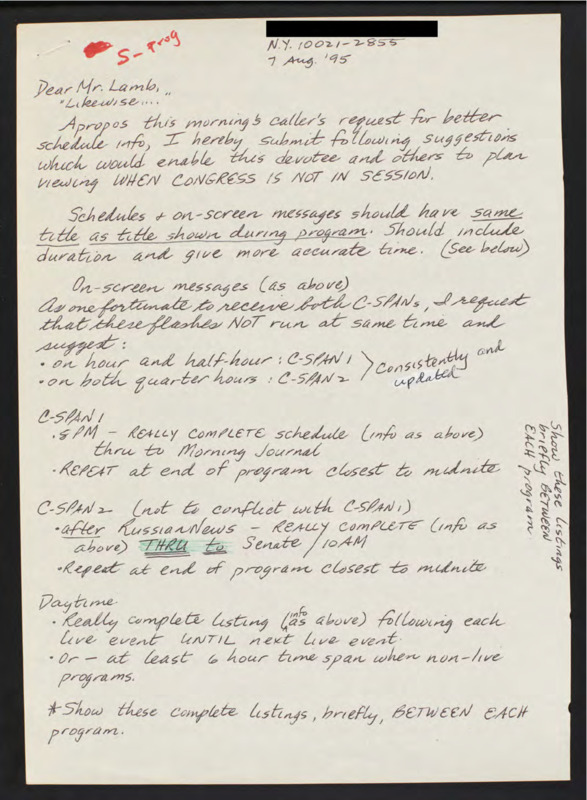 S-Prog
N.Y. 10021-2855
7 Aug. '95
Dear Mr. Lamb,
"Likewise....
Apropos this morning's caller's request for better
schedule info, I hereby submit following suggestions
which would enable this devotee and others to plan
viewing WHEN CONGRESS IS NOT IN SESSION.
Schedules + on-screen messages should have same
title as title shown during program. Should include
duration and give more accurate time. (See below)
On-screen messages (as above)
As one fortunate to receive both C-SPANs, I request
that these flashes NOT run at same time and
suggest:
• on hour and half-hour: C-SPAN 1
• on both quarter hours: C-SPAN 2
> consistently and
updated
C-SPAN 1
• 8 PM - REALLY COMPLETE schedule (info as above)
thru to Morning Journal
• REPEAT at end of program closest to midnite
C-SPAN 2 (not to conflict with C-SPAN 1)
• after Russian News - REALLY COMPLETE (info as
above) THRU to Senate / 10AM
• Repeat at end of program closest to midnite
Daytime
• Really complete listing (info as above) following each
live event UNTIL next live event
• Or - at least 6 hour time span when non-live
programs.
* Show these complete listings, briefly, BETWEEN EACH
program.
Show these listings
briefly BETWEEN
EACH program